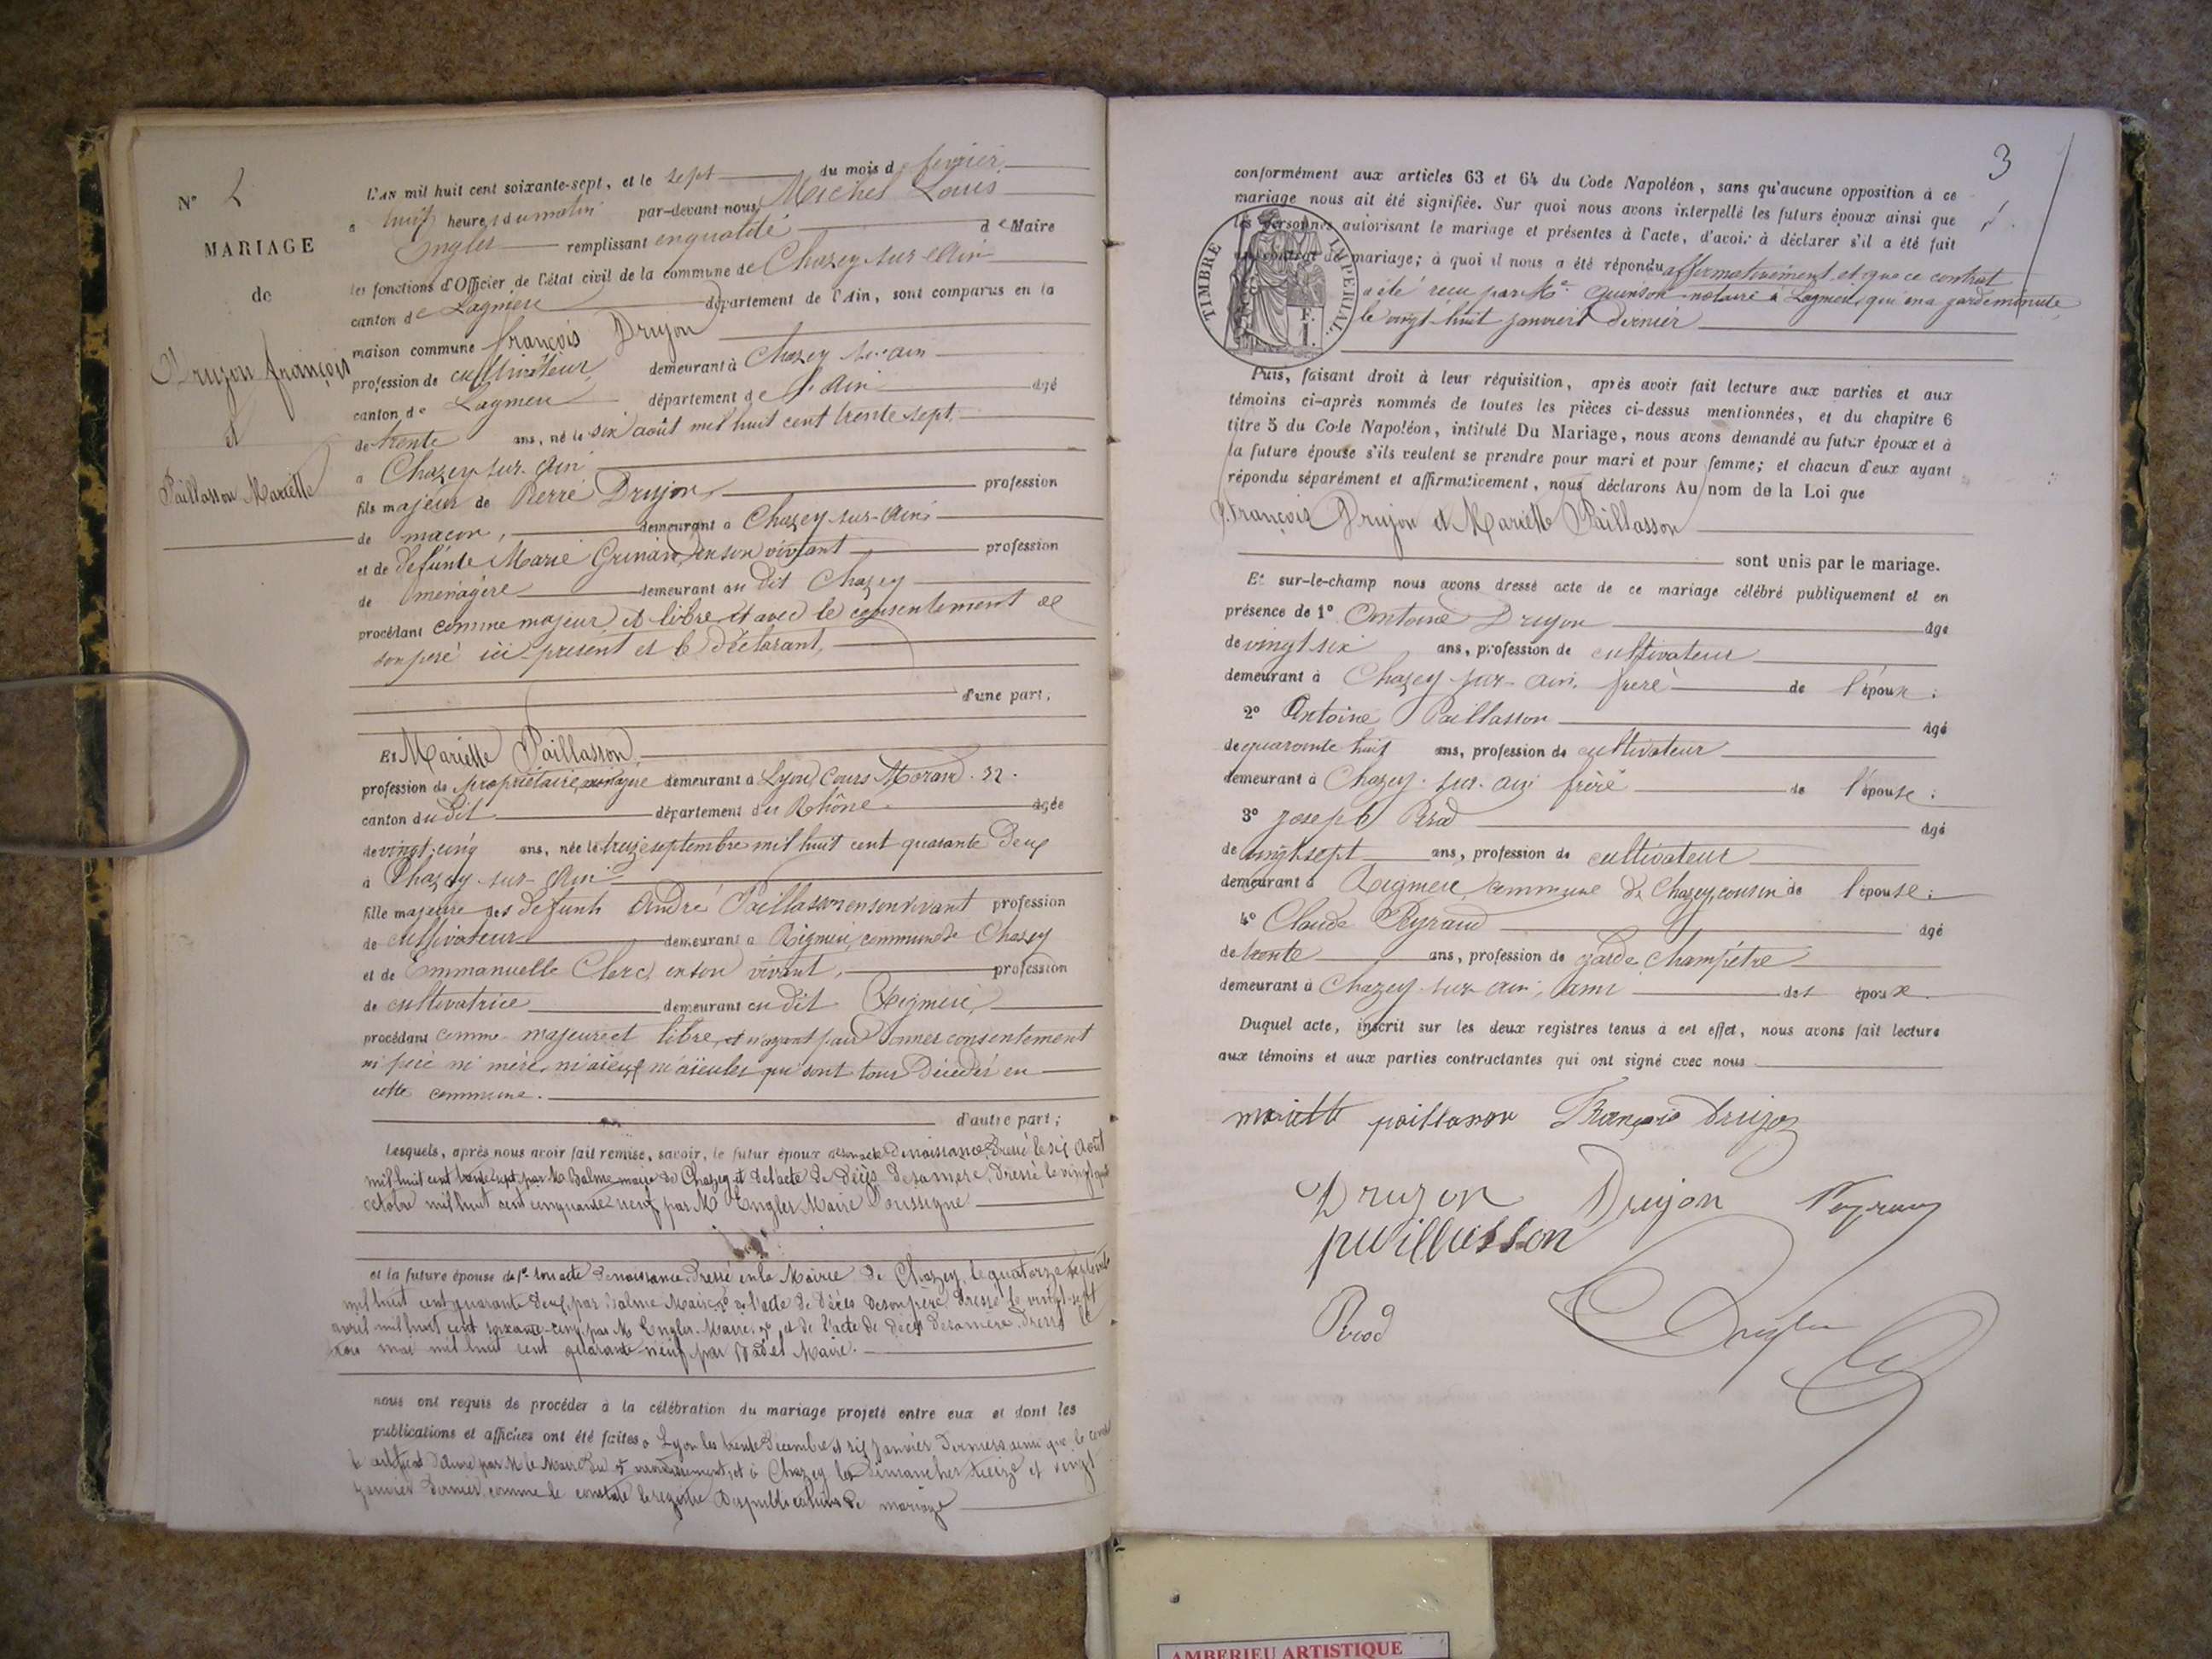 N° 2
MARIAGE
de
Drujon François
et
Paillasson Mariette
L'AN mil huit cent soixante-sept, et le sept du mois de février
à huit heures du matin par-devant nous, Michel Louis
Engler remplissant en qualité de Maire
les fonctions d'Officier de l'état civil de la commune de Chazey-sur-Ain
canton de Lagnieu département de l'Ain, sont comparus en la
maison commune François Drujon
profession de cultivateur demeurant à Chazey-sur-ain
canton de Lagnieu département de l'Ain âgé
de trente ans, né le six août mil huit cent trente sept,
à Chazey-sur-Ain
fils majeur de Pierre Drujon, profession
de maçon, demeurant à Chazey-sur-Ain
et de défunte Marie Grinand, en son vivant profession
de ménagère demeurant au dit Chazey
procédant comme majeur et libre et avec le consentement de
son père ici présent et le déclarant,
d'une part;
Et Mariette Paillasson,
profession de propriétaire, demeurant à Lyon, Cours Morand. 32.
canton du dit département du Rhône. agée
de vingt-cinq ans, née le treize septembre mil huit cent quarante deux
à Chazey-sur-Ain
fille majeure des défunts André Paillasson en son vivant profession
de cultivateur demeurant à Rigneu, commune de Chazey
et de Emmanuelle Clerc, en son vivant, profession
de cultivatrice demeurant au dit Rigneu,
procédant comme majeure et libre, et n'ayant pour donner consentement
ni père ni mère, ni aïeux ni aïeules qui sont tous décédés en
cette commune.
d'autre part;
Lesquels, après nous avoir fait remise, savoir, le futur époux de son acte de naissance, dressé le six Août
mil huit cent trente sept, par M. Balme maire de Chazey, et de l'acte de décès de sa mère, dressé le vingt
octobre mil huit cent cinquante neuf par M. Engler Maire soussigné
et la future épouse de 1° son acte de naissance, dressé en la Mairie de Chazey, le quatorze septembre
mil huit cent quarante deux, par Balme Maire, 2° de l'acte de décès de son père, dressé le vingt-sept
avril mil huit cent soixante-cinq, par M. Engler, Maire, 3° et de l'acte de décès de sa mère, dressé le
trois mai mil huit cent quarante-neuf par Maire.
nous ont requis de procéder à la célébration du mariage projeté entre eux et dont les
publications et affiches ont été faites à Lyon les trente Décembre et six Janvier derniers ainsi que le
certificat délivré par M. le Maire du arrondissement, et à Chazey les Dimanches treize et vingt
janvier dernier, comme le constate le registre des publications de mariage
3
conformément aux articles 63 et 64 du Code Napoléon, sans qu'aucune opposition à ce
mariage nous ait été signifiée. Sur quoi nous avons interpellé les futurs époux ainsi que
les personnes autorisant le mariage et présentes à l'acte, d'avoir à déclarer s'il a été fait
un contrat de mariage; à quoi il nous a été répondu affirmativement et que ce contrat
a été reçu par Me Quinson notaire à Lagnieu, qui en a gardé minute
le vingt-huit janvier dernier
TIMBRE IMPERIAL
Puis, faisant droit à leur réquisition, après avoir fait lecture aux parties et aux
témoins ci-après nommés de toutes les pièces ci-dessus mentionnées, et du chapitre 6
titre 5 du Code Napoléon, intitulé Du Mariage, nous avons demandé au futur époux et à
la future épouse s'ils veulent se prendre pour mari et pour femme; et chacun d'eux ayant
répondu séparément et affirmativement, nous déclarons Au nom de la Loi que
François Drujon et Mariette Paillasson
sont unis par le mariage.
Et sur-le-champ nous avons dressé acte de ce mariage célébré publiquement et en
présence de 1° Antoine Drujon âgé
de vingt six ans, profession de cultivateur
demeurant à Chazey-sur-ain, frère de l'époux;
2° Antoine Paillasson âgé
de quarante huit ans, profession de cultivateur
demeurant à Chazey-sur-ain frère de l'épouse;
3° Joseph Perod âgé
de vingt sept ans, profession de cultivateur
demeurant à Rigneu, commune de Chazey, cousin de l'épouse;
4° Claude Peyraud âgé
de trente ans, profession de garde champêtre
demeurant à Chazey-sur-ain, ami des époux.
Duquel acte, inscrit sur les deux registres tenus à cet effet, nous avons fait lecture
aux témoins et aux parties contractantes qui ont signé avec nous
mariette paillasson François Drujon
Drujon Drujon Peyraud
paillasson
Perod Engler
AMBERIEU ARTISTIQUE